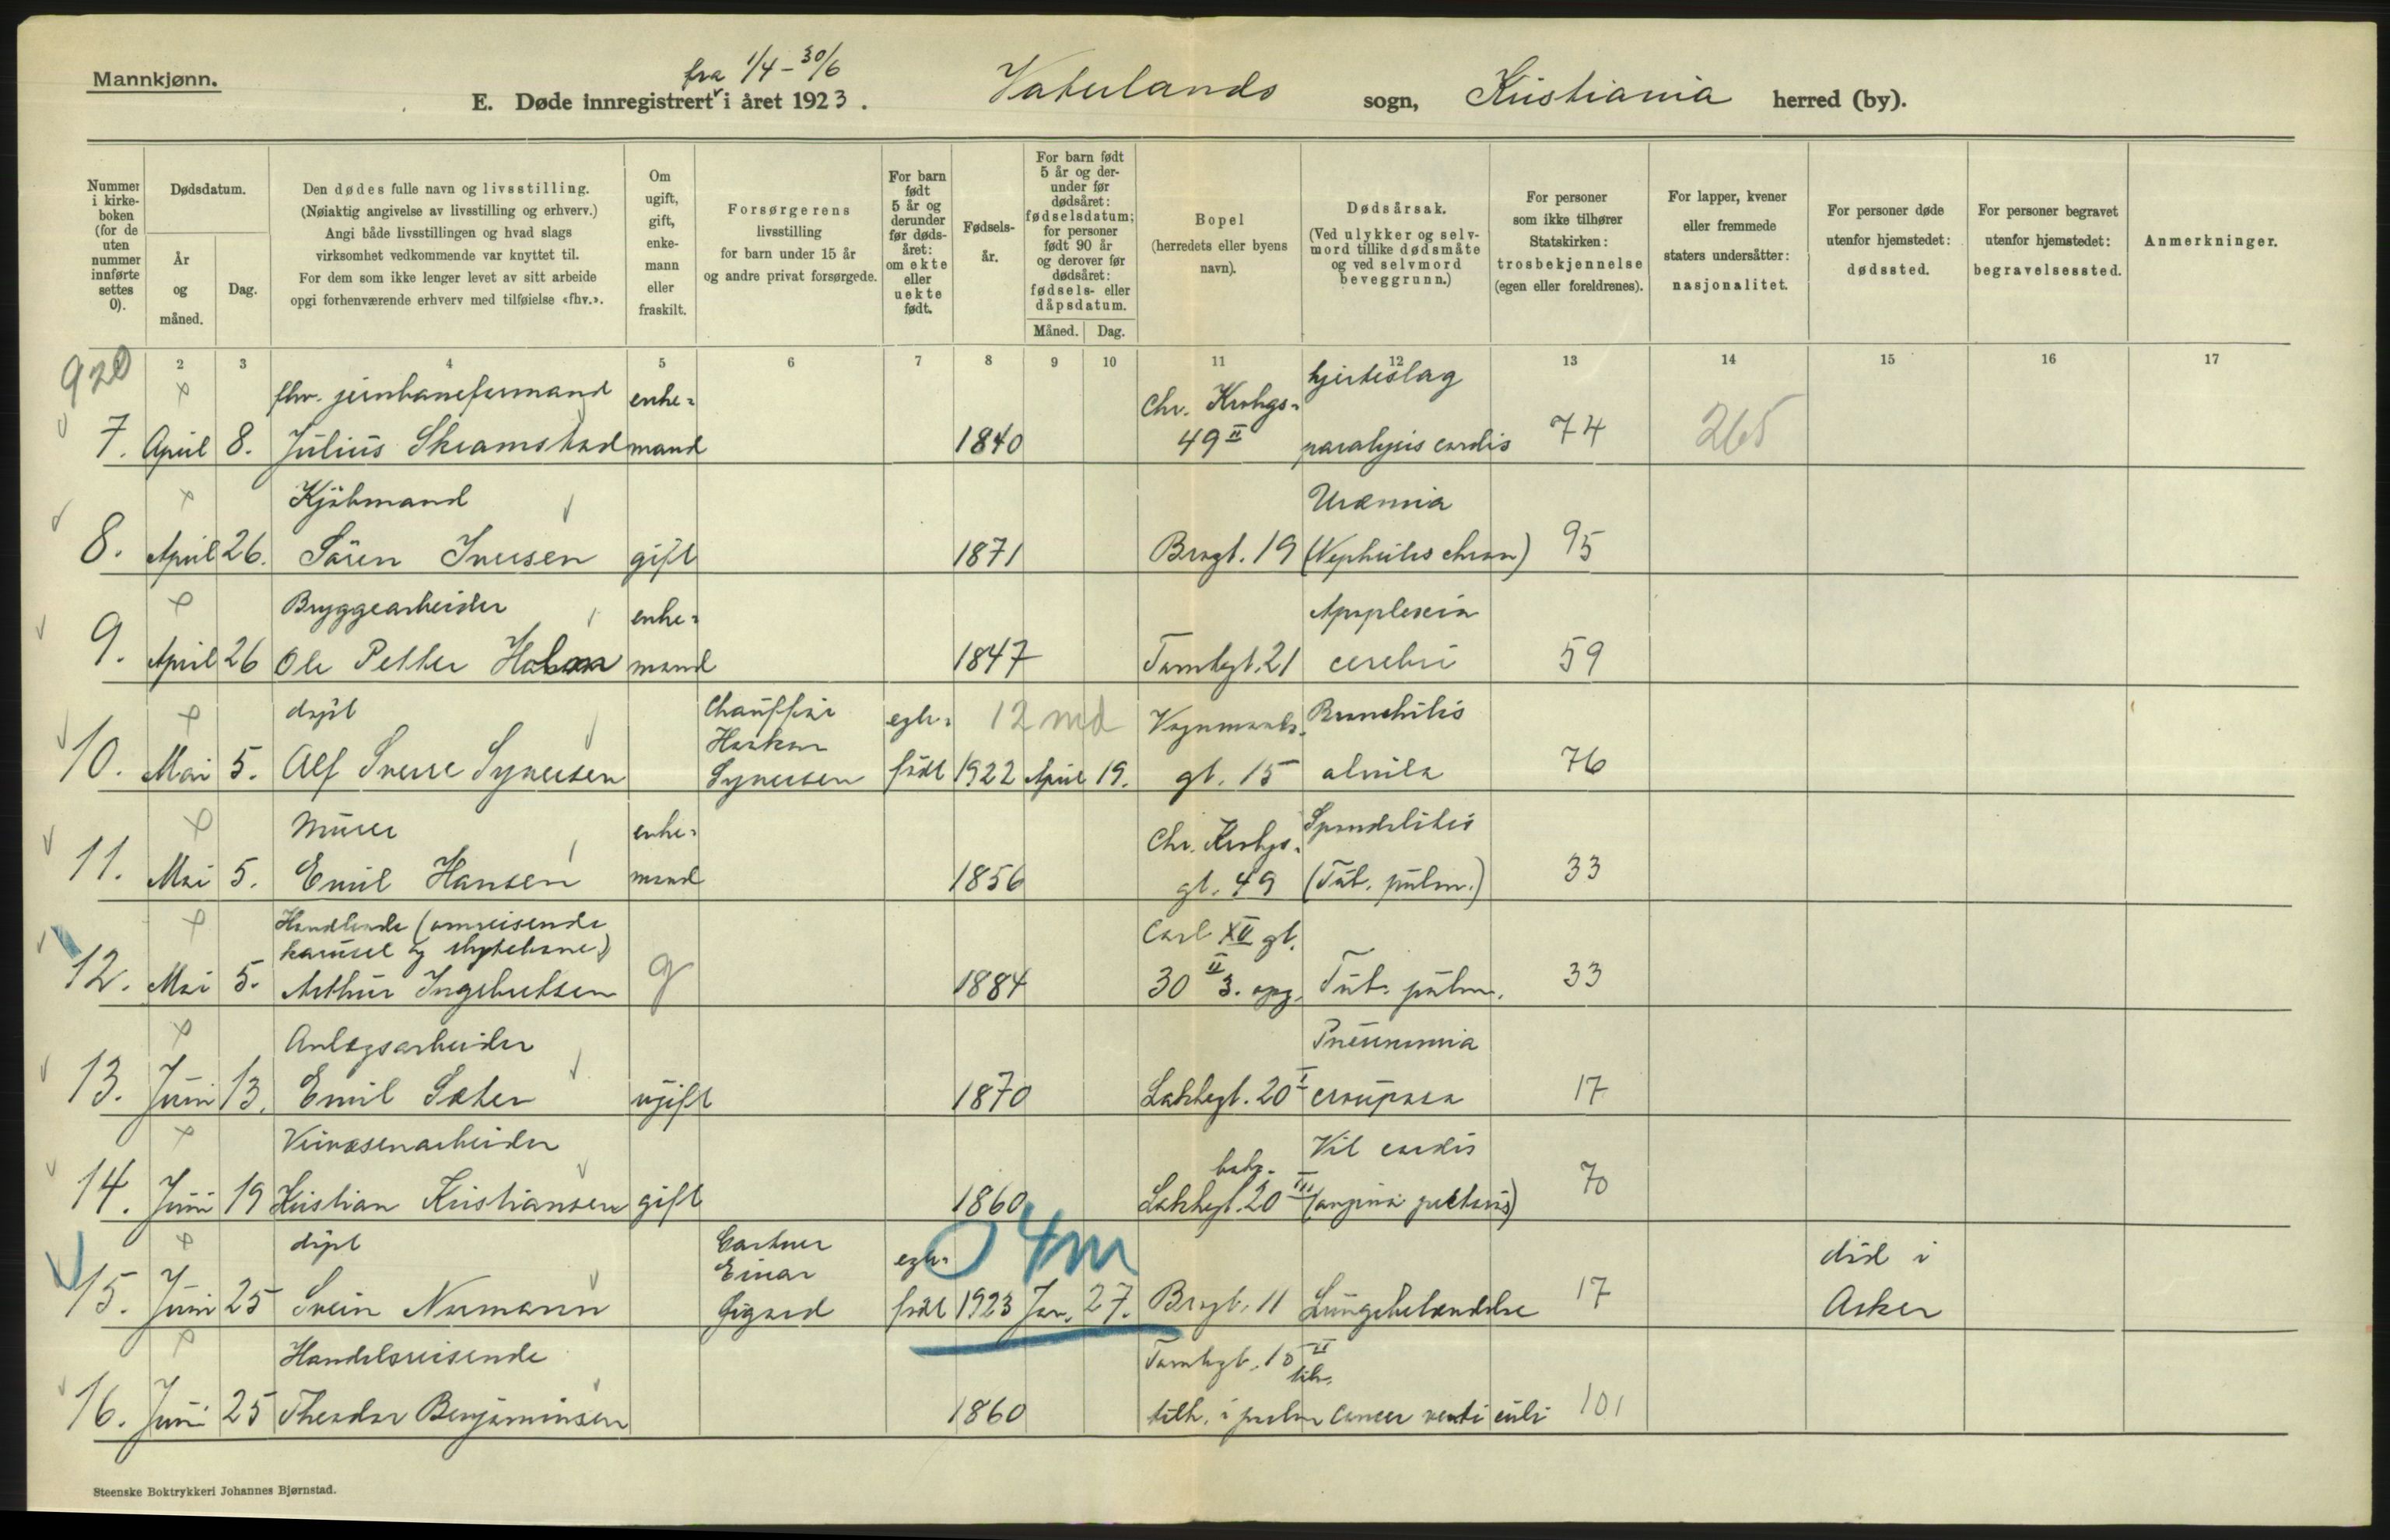 Mannkjønn.
fra 1/4 - 30/6
E. Døde innregistrert i året 1923. Vaterlands sogn, Kristiania herred (by).
Nummer i kirkeboken (for de uten nummer innførte settes 0).
Dødsdatum.
År og måned.
Dag.
Den dødes fulle navn og livsstilling.
(Nøiaktig angivelse av livsstilling og erhverv.)
Angi både livsstillingen og hvad slags
virksomhet vedkommende var knyttet til.
For dem som ikke lenger levet av sitt arbeide
opgi forhenværende erhverv med tilføielse «fhv.».
Om ugift, gift, enkemann eller fraskilt.
Forsørgerens
livsstilling
for barn under 15 år
og andre privat forsørgede.
For barn født 5 år og derunder før dødsåret: om ekte eller uekte født.
Fødselsår.
For barn født 5 år og derunder før dødsåret: fødselsdatum; for personer født 90 år og derover før dødsåret: fødsels- eller dåpsdatum.
Måned. Dag.
Bopel
(herredets eller byens
navn).
Dødsårsak.
(Ved ulykker og selvmord tillike dødsmåte og ved selvmord beveggrunn.)
For personer
som ikke tilhører
Statskirken:
trosbekjennelse
(egen eller foreldrenes).
For lapper, kvener
eller fremmede
staters undersåtter:
nasjonalitet.
For personer døde
utenfor hjemstedet:
dødssted.
For personer begravet
utenfor hjemstedet:
begravelsessted.
Anmerkninger.
920 2 3 4 5 6 7 8 9 10 11 12 13 14 15 16 17
fhv. jernbaneformand enke= Chr. Krohgs= hjerteslag
7. April 8. Julius Skramstad mand 1840 49 II paralysis cordis 74 265
Kjøbmand Uræmia
8. April 26. Sören Iversen gift 1871 Brogt. 19 (Nephritis chron) 95
Bryggearbeider enke= Apoplexia
9. April 26 Ole Petter mand 1847 Tomtegt. 21 cerebri 59
døpt Chauffør egte= 12 md Vognmands= Bronchitis
10. Mai 5. Alf Sverre Syversen Haakon Syversen født 1922 April 19. gt. 15 76
Murer enke= Chr. Krohgs= Spondylitis
11. Mai 5. Emil Hansen mand 1856 gt. 49 (Tub. pulm.) 33
Handlende (omreisende
karusel og skytebane) Carl XII gt.
12. Mai 5. Arthur Ingebretsen g 1884 30 II 3. opg. Tub. pulm. 33
Anlægsarbeider Pneumonia
13. Juni 13. Emil Sæter ugift 1870 Lakkegt. 20 I crouposa 17
Veivæsenarbeider Vit cordis
14. Juni 19 Kristian Kristiansen gift 1860 Lakkegt. 20 III (angina pectoris) 70
døpt Gartner egte= 0 4m død i
15. Juni 25 Svein Normann Einar Sigurd født 1923 Jan. 27. Brogt. 11 Lungebetændelse 17 Asker
Handelsreisende Tomtegt. 10 II
16. Juni 25 Theodor Benjaminsen 1860 Cancer ventriculi 101
Steenske Boktrykkeri Johannes Bjørnstad.